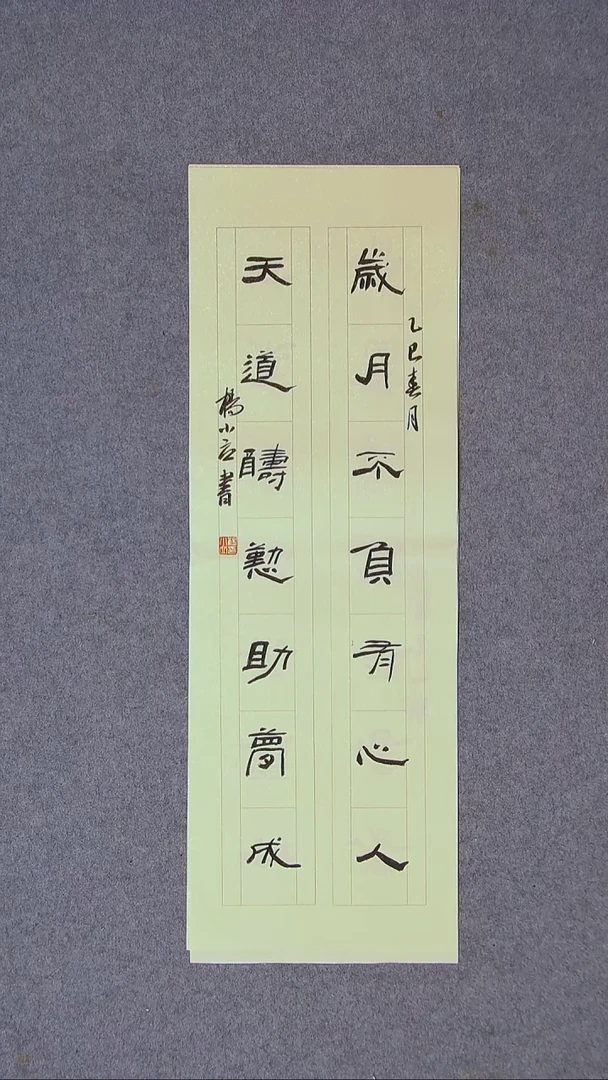 乙巳春月
歲月不負有心人
天道醻懃助夢成
楊小書